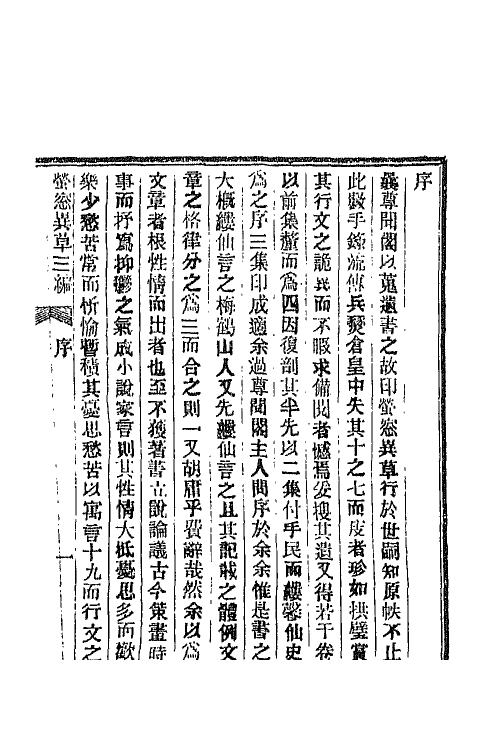 序
曩尊聞閣以蒐遺書之故印螢窓異草行於世嗣知原帙不止
此蓋手錄流傳兵燹倉皇中失其十之七而庋者珍如拱璧賞
其行文之詭異而不暇求備閱者憾焉爰搜其遺又得若干卷
以前集釐而爲四因復剖其半先以二集付手民而縷馨仙史
爲之序三集印成適余過尊聞閣主人問序於余余惟是書之
大概縷仙言之梅鶴山人又先縷仙言之且其記載之體例文
章之格律分之爲三而合之則一又胡庸乎費辭哉然余以爲
文章者根性情而出者也至不獲著書立說論議古今策畫時
事而抒寫抑鬱之氣成小說家言則其性情大抵憂思多而歡
樂少愁苦常而忻愉暫積其憂思愁苦以寓言十九而行文之
螢窓異草三編
序
一